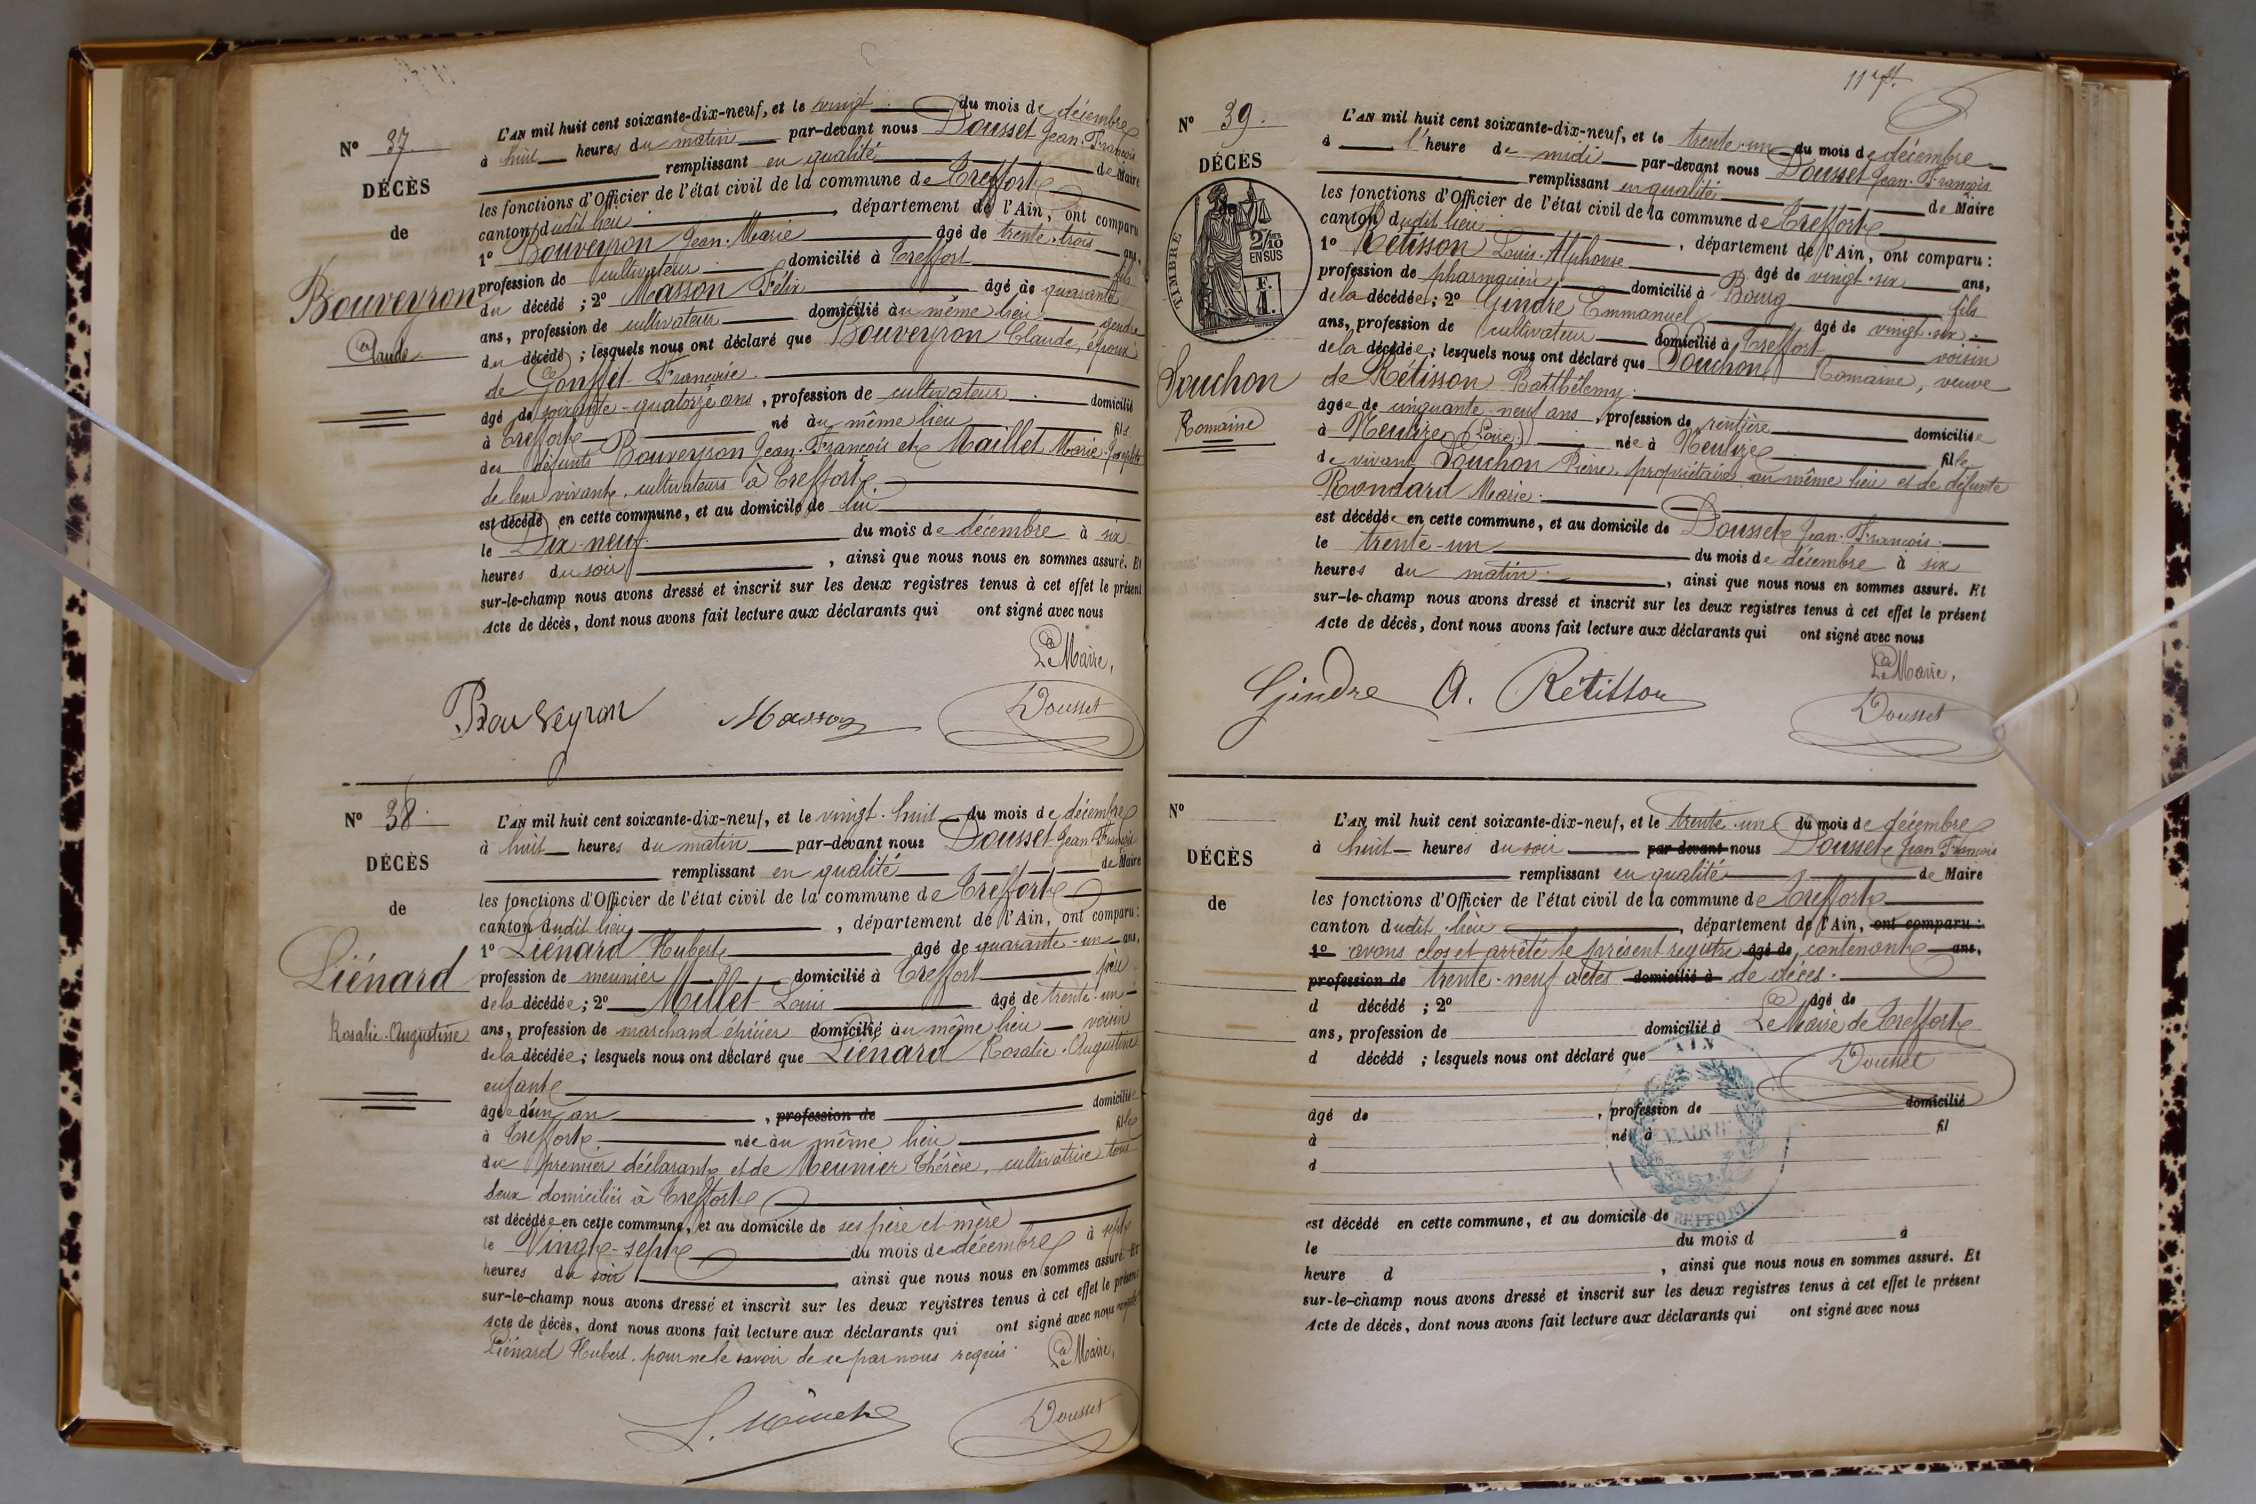 N° 37.
DÉCÈS
de
Bouveyron
Claude
L'AN mil huit cent soixante-dix-neuf, et le vingt du mois de décembre
à huit heures du matin par-devant nous Dousset Jean-François
remplissant en qualité de Maire
les fonctions d'Officier de l'état civil de la commune de Treffort
canton dudit lieu, département de l'Ain, ont comparu
1° Bouveyron Jean-Marie âgé de trente-trois ans,
profession de cultivateur domicilié à Treffort fils
du décédé ; 2° Masson Félix âgé de quarante
ans, profession de cultivateur domicilié au même lieu gendre
du décédé ; lesquels nous ont déclaré que Bouveyron Claude, époux
de Gouffet Françoise.
âgé de soixante-quatorze ans, profession de cultivateur domicilié
à Treffort né au même lieu fils
des défunts Bouveyron Jean-François et Maillet Marie-Josephte
de leur vivant cultivateurs à Treffort.
est décédé en cette commune, et au domicile de lui
le Dix-neuf du mois de décembre à six
heures du soir, ainsi que nous nous en sommes assuré. Et
sur-le-champ nous avons dressé et inscrit sur les deux registres tenus à cet effet le présent
Acte de décès, dont nous avons fait lecture aux déclarants qui ont signé avec nous
Le Maire,
Bouveyron Masson Dousset
N° 38.
DÉCÈS
de
Liénard
Rosalie-Augustine
L'AN mil huit cent soixante-dix-neuf, et le vingt-huit du mois de décembre
à huit heures du matin par-devant nous Dousset Jean-François
remplissant en qualité de Maire
les fonctions d'Officier de l'état civil de la commune de Treffort
canton dudit lieu, département de l'Ain, ont comparu :
1° Liénard Hubert âgé de quarante-un ans,
profession de meunier domicilié à Treffort père
de la décédée ; 2° Millet Louis âgé de trente-un
ans, profession de marchand épicier domicilié au même lieu voisin
de la décédée ; lesquels nous ont déclaré que Liénard Rosalie-Augustine
enfant
âgée d'un an, profession de domiciliée
à Treffort née au même lieu fille
du premier déclarant et de Meunier Thérèse, cultivatrice tous
deux domiciliés à Treffort
est décédée en cette commune, et au domicile de ses père et mère
le Vingt-sept du mois de décembre à sept
heures du soir, ainsi que nous nous en sommes assuré. Et
sur-le-champ nous avons dressé et inscrit sur les deux registres tenus à cet effet le présent
Acte de décès, dont nous avons fait lecture aux déclarants qui ont signé avec nous
Liénard Hubert pour ne le savoir de ce par nous requis. Le Maire,
Dousset
117
N° 39.
DÉCÈS
TIMBRE
2/10 EN SUS
F. 1.
Souchon
Romaine
L'AN mil huit cent soixante-dix-neuf, et le trente-un du mois de décembre
à l'heure de midi par-devant nous Dousset Jean-François
remplissant en qualité de Maire
les fonctions d'Officier de l'état civil de la commune de Treffort
canton dudit lieu, département de l'Ain, ont comparu :
1° Rétisson Louis-Alphonse âgé de vingt-six ans,
profession de pharmacien domicilié à Bourg fils
de la décédée ; 2° Gindre Emmanuel âgé de vingt-six
ans, profession de cultivateur domicilié à Treffort voisin
de la décédée ; lesquels nous ont déclaré que Souchon Romaine, veuve
de Rétisson Barthélemy.
âgée de cinquante-neuf ans, profession de rentière domiciliée
à Neulize (Loire) née à Neulize fille
de vivant Souchon Pierre, propriétaire au même lieu et de défunte
Rondard Marie.
est décédée en cette commune, et au domicile de Dousset Jean-François.
le trente-un du mois de décembre à six
heures du matin, ainsi que nous nous en sommes assuré. Et
sur-le-champ nous avons dressé et inscrit sur les deux registres tenus à cet effet le présent
Acte de décès, dont nous avons fait lecture aux déclarants qui ont signé avec nous
Le Maire,
Gindre A. Rétisson Dousset
N°
DÉCÈS
de
L'AN mil huit cent soixante-dix-neuf, et le trente-un du mois de décembre
à huit heures du soir par devant nous Dousset Jean-François
remplissant en qualité de Maire
les fonctions d'Officier de l'état civil de la commune de Treffort
canton dudit lieu, département de l'Ain, ont comparu :
1° avons clos et arrêté le présent registre âgé de contenant ans,
profession de trente-neuf actes domicilié à de décès.
d décédé ; 2° âgé de
ans, profession de domicilié à Le Maire de Treffort
d décédé ; lesquels nous ont déclaré que
Dousset
AIN
MAIRIE
TREFFORT
âgé de, profession de domicilié
à né à fil
d
est décédé en cette commune, et au domicile de
le du mois d à
heure d, ainsi que nous nous en sommes assuré. Et
sur-le-champ nous avons dressé et inscrit sur les deux registres tenus à cet effet le présent
Acte de décès, dont nous avons fait lecture aux déclarants qui ont signé avec nous